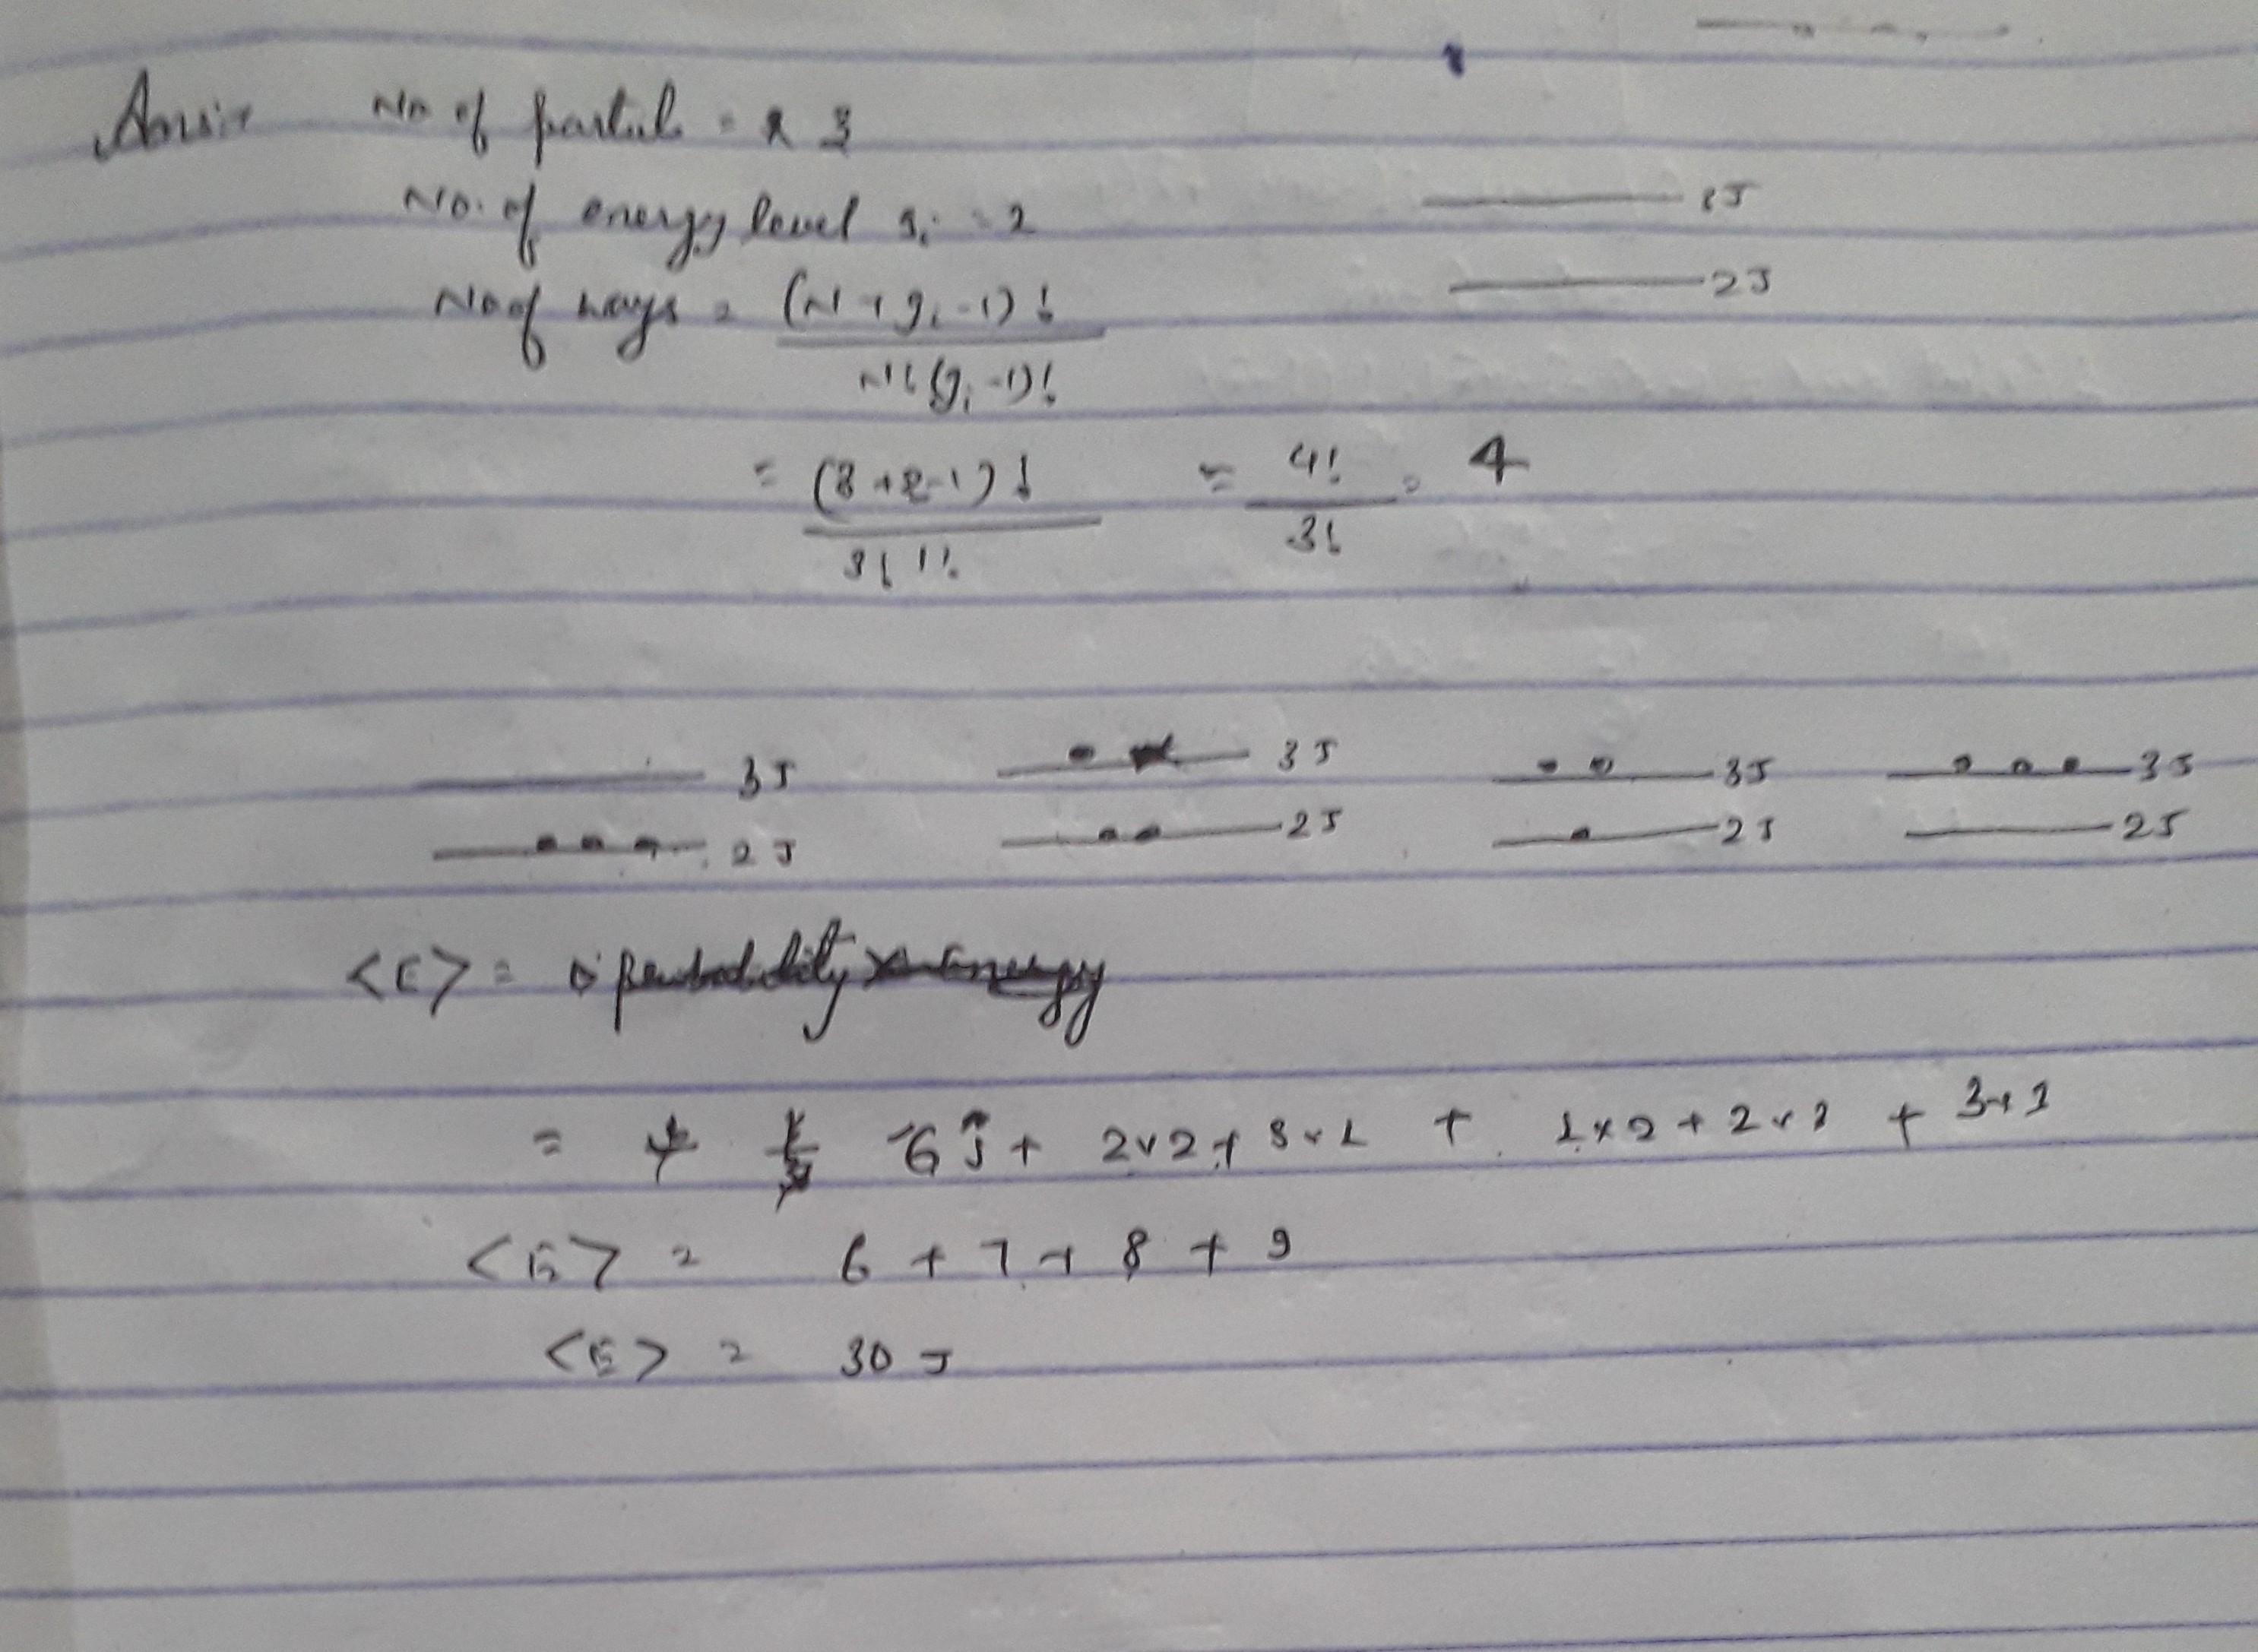 No of particle = 3
No. of energy level gi = 2
3J
2J
No of ways = (N + gi - 1)!
N! (gi - 1)!
= (3 + 2 - 1)! = 4! = 4
3! 1! 3!
3J 3J 3J 3J
2J 2J 2J 2J
<E> = probability x Energy
= 6J + 2x2 + 3x1 + 1x2 + 2x3 + 3x3
<E> = 6 + 7 + 8 + 9
<E> = 30 J